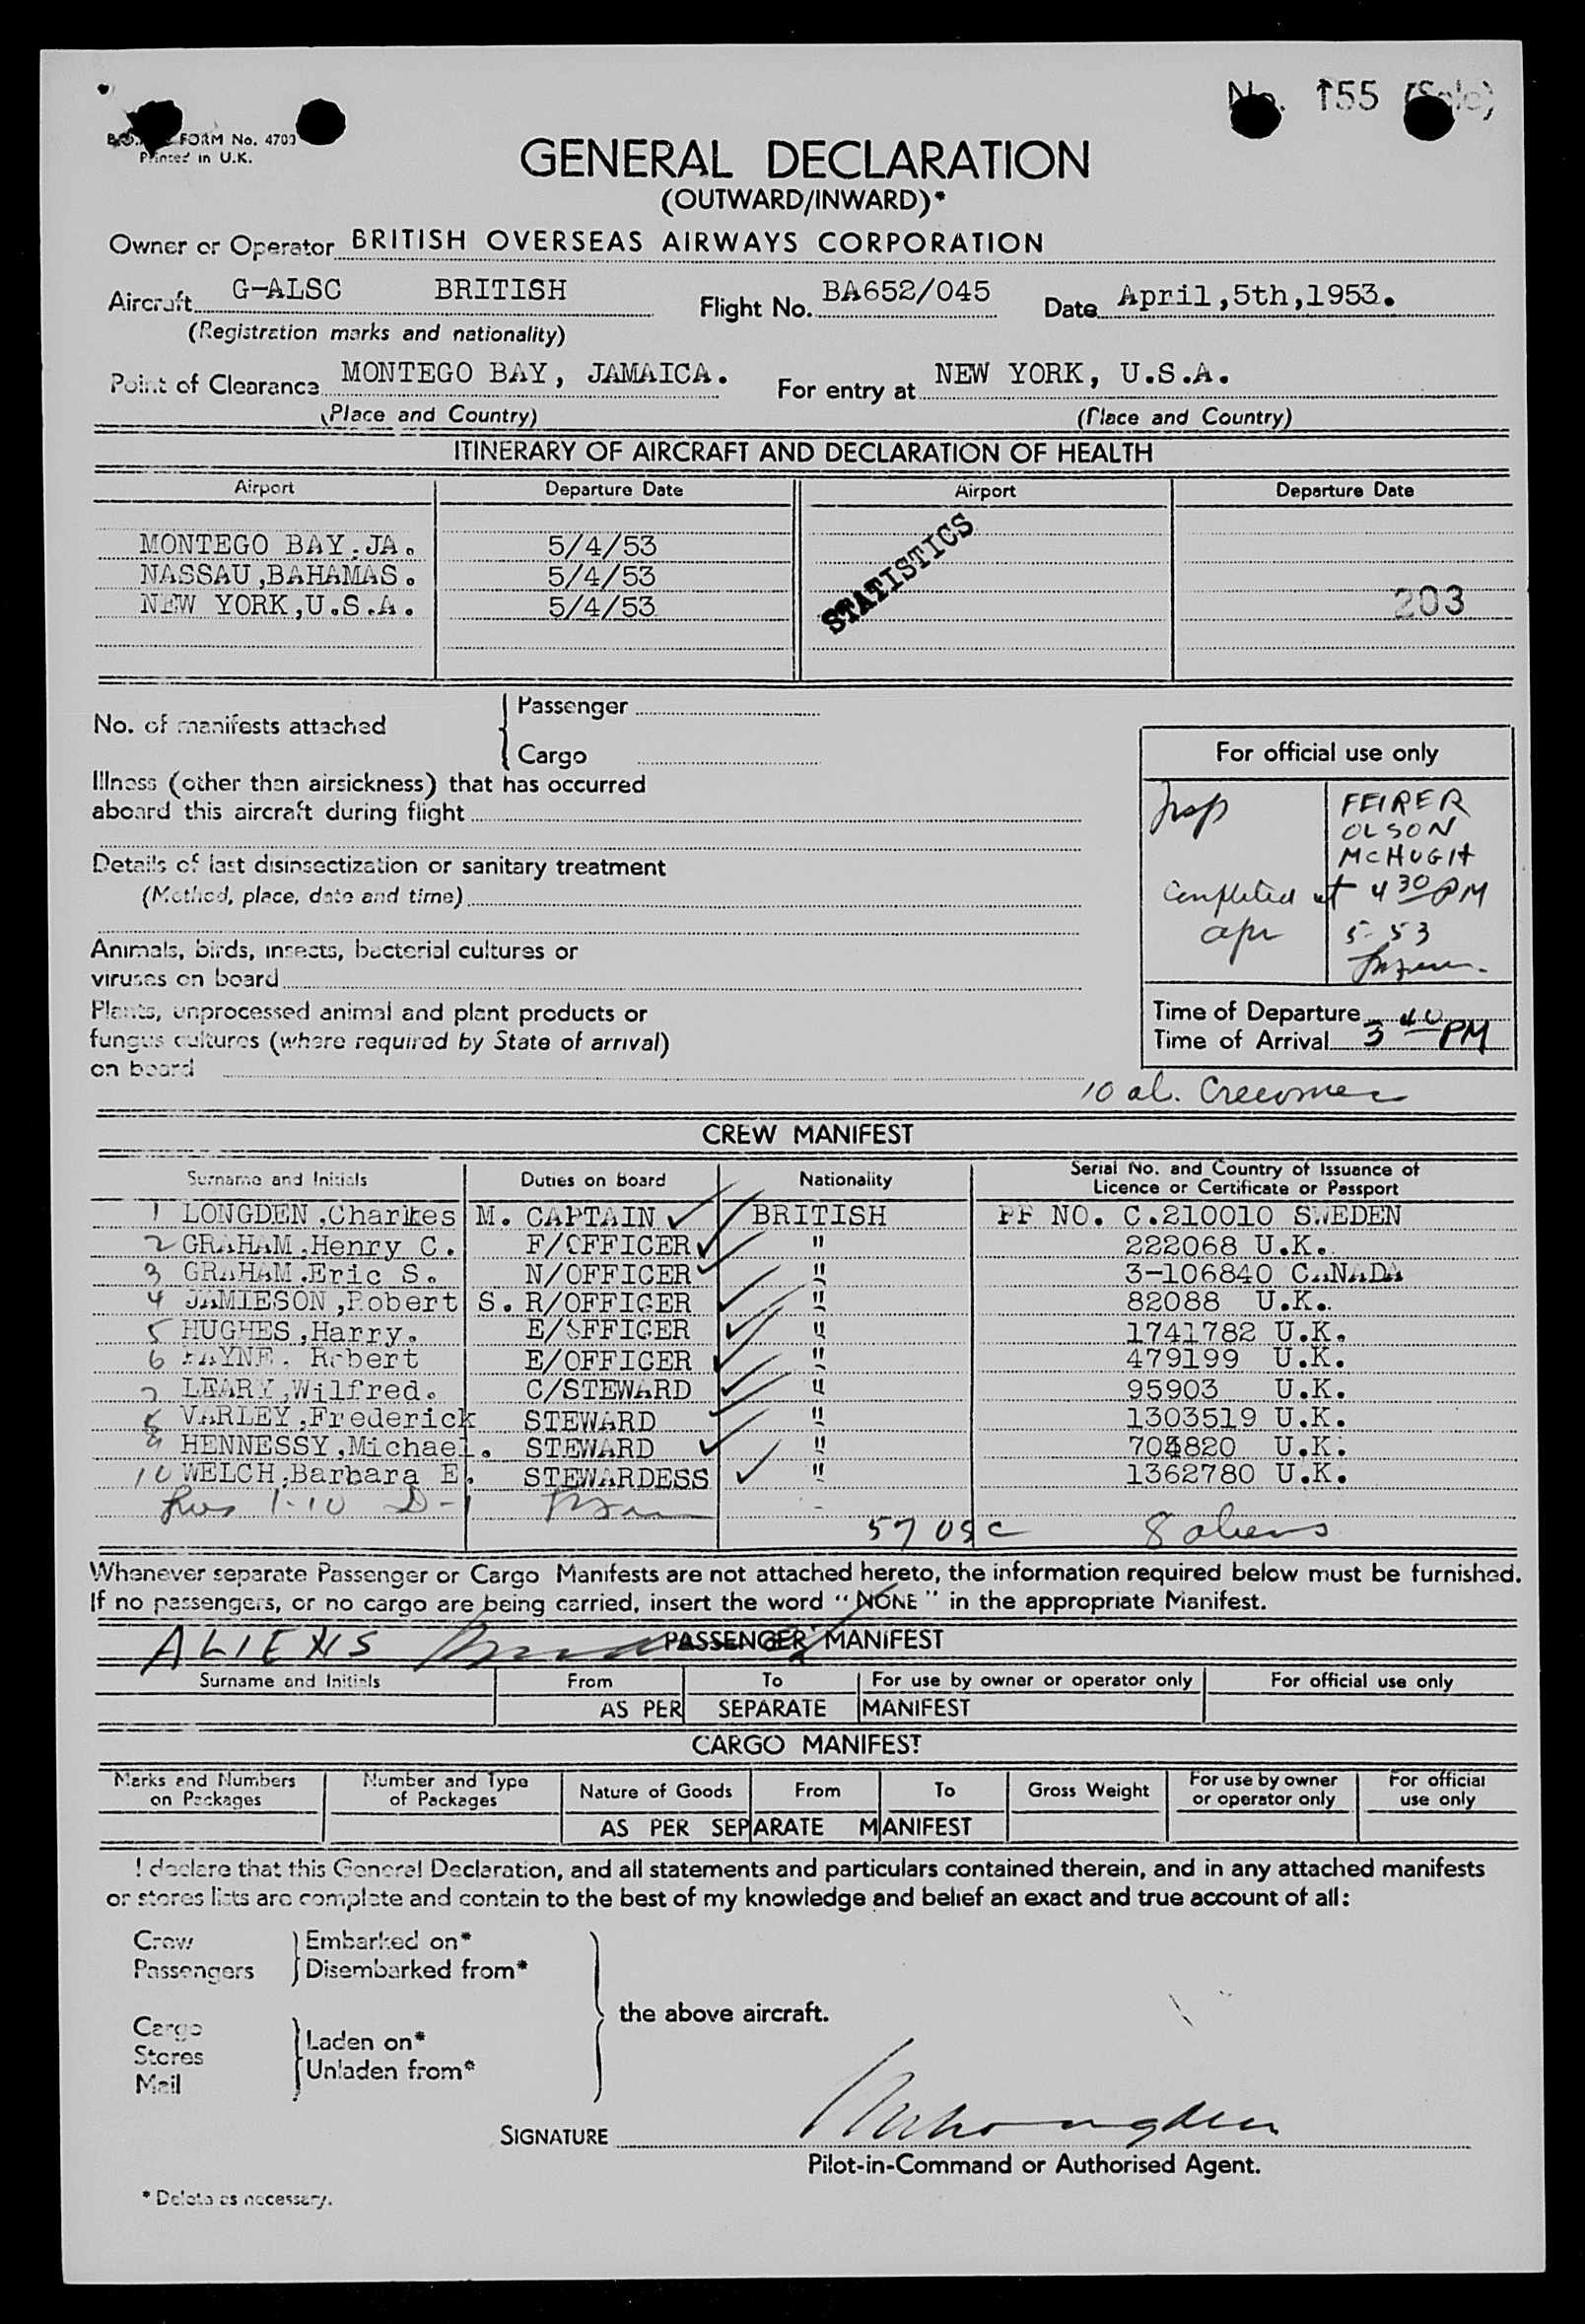 No. 155 (Sale)
FORM No. 4703
Printed in U.K.
GENERAL DECLARATION
(OUTWARD/INWARD)*
Owner or Operator BRITISH OVERSEAS AIRWAYS CORPORATION
Aircraft G-ALSC BRITISH Flight No. BA652/045 Date April,5th,1953.
(Registration marks and nationality)
Point of Clearance MONTEGO BAY, JAMAICA. For entry at NEW YORK, U.S.A.
(Place and Country) (Place and Country)
ITINERARY OF AIRCRAFT AND DECLARATION OF HEALTH
Airport Departure Date Airport Departure Date
MONTEGO BAY,JA. 5/4/53
NASSAU,BAHAMAS. 5/4/53
NEW YORK,U.S.A. 5/4/53
STATISTICS
203
No. of manifests attached
Passenger
Cargo
Illness (other than airsickness) that has occurred
aboard this aircraft during flight
Details of last disinsectization or sanitary treatment
(Method, place, date and time)
Animals, birds, insects, bacterial cultures or
viruses on board
Plants, unprocessed animal and plant products or
fungus cultures (where required by State of arrival)
on board
For official use only
Insp FEIRER
OLSON
McHUGH
Completed at 4 30 PM
apr 5-53
Time of Departure
Time of Arrival 3 40 PM
10 al. Crewmen
CREW MANIFEST
Surname and Initials Duties on Board Nationality Serial No. and Country of Issuance of
Licence or Certificate or Passport
1 LONGDEN,Charles M. CAPTAIN BRITISH PP NO. C.210010 SWEDEN
2 GRAHAM,Henry C. F/OFFICER " 222068 U.K.
3 GRAHAM.Eric S. N/OFFICER " 3-106840 CANADA
4 JAMIESON,Robert S. R/OFFICER " 82088 U.K.
5 HUGHES,Harry. E/OFFICER " 1741782 U.K.
6 PAYNE. Robert E/OFFICER " 479199 U.K.
7 LEARY,Wilfred. C/STEWARD " 95903 U.K.
8 VARLEY,Frederick STEWARD " 1303519 U.K.
9 HENNESSY,Michael. STEWARD " 704820 U.K.
10 WELCH,Barbara E. STEWARDESS " 1362780 U.K.
1-10 D-1
57 USC 8 aliens
Whenever separate Passenger or Cargo Manifests are not attached hereto, the information required below must be furnished.
If no passengers, or no cargo are being carried, insert the word "NONE" in the appropriate Manifest.
ALIENS PASSENGER MANIFEST
Surname and Initials From To For use by owner or operator only For official use only
AS PER SEPARATE MANIFEST
CARGO MANIFEST
Marks and Numbers on Packages Number and Type of Packages Nature of Goods From To Gross Weight For use by owner or operator only For official use only
AS PER SEPARATE MANIFEST
I declare that this General Declaration, and all statements and particulars contained therein, and in any attached manifests
or stores lists are complete and contain to the best of my knowledge and belief an exact and true account of all:
Crew Embarked on*
Passengers Disembarked from*
the above aircraft.
Cargo
Stores Laden on*
Mail Unladen from*
SIGNATURE
Pilot-in-Command or Authorised Agent.
* Delete as necessary.